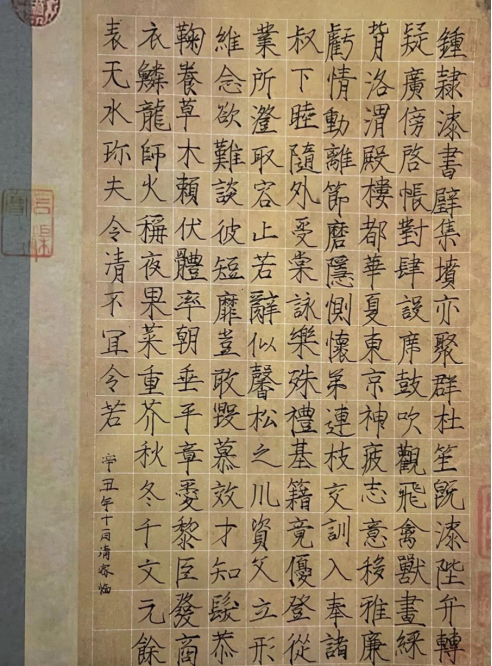 鍾隸漆書壁集墳亦聚群杜笙既漆陛弁轉
疑廣傍啓帳對肆設席鼓吹觀飛禽獸畫綵
背洛渭殿樓都華夏東京神疲志意移雅廉
虧情動離節磨隱惻懷弟連枝交訓入奉諸
叔下睦隨外受棠詠樂殊禮基籍竟優登從
業所澄取容止若辭似馨松之川資父立形
維念欲難談彼短靡豈敢毀慕效才知髮恭
鞠養草木賴伏體率朝垂平章愛黎臣發商
衣鱗龍師火稱夜果菜重芥秋冬千文元餘
表无水珎夫令清不宜令若
辛丑年十月清臨